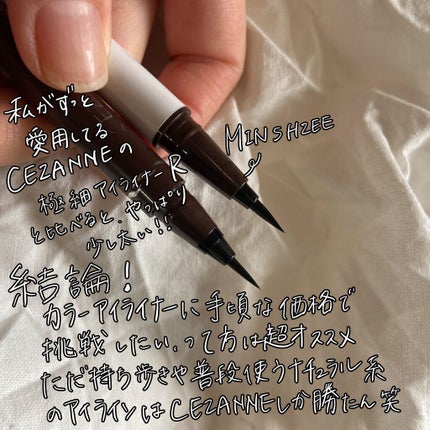 私がずっと
愛用してる
CEZANNEの
極細アイライナーR
と比べると、やっぱり
少し太い!!
MINSHZEE
結論!
カラーアイライナーに手頃な価格で
挑戦したい、って方は超オススメ
ただ持ち歩きや普段使うナチュラル系
のアイラインはCEZANNEしか勝たん笑